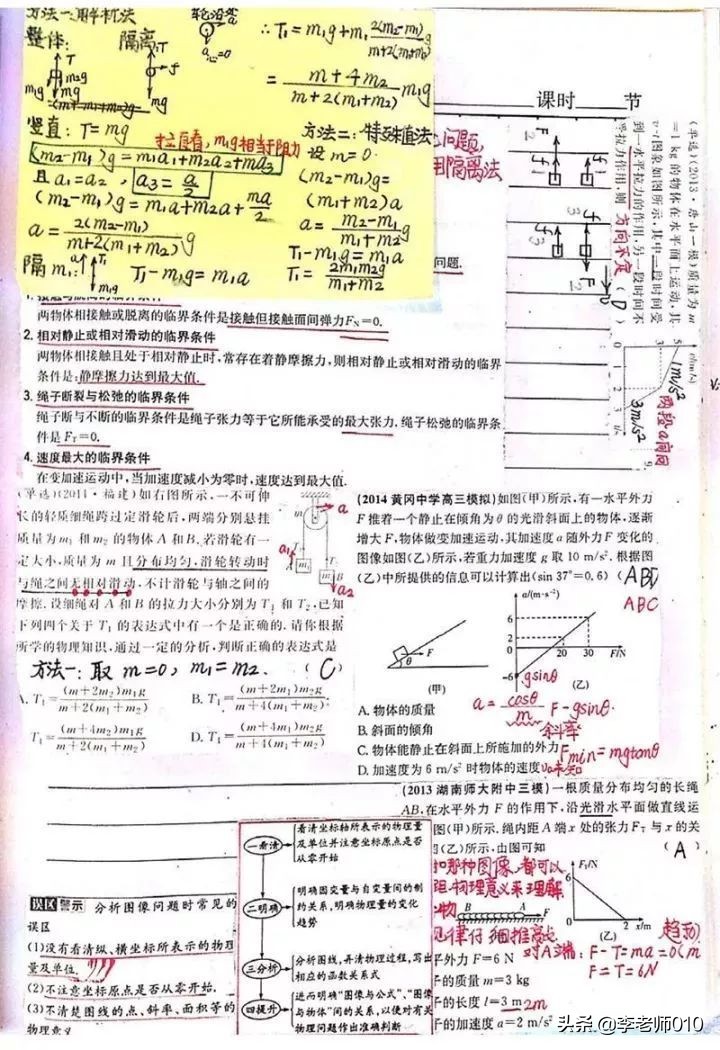 方法一:解析法
整体: 隔离:
竖直: T=mg
(m₂-m₁)g=m₁a₁+m₂a₂+ma₃
且a₁=a₂, a₃=a/2
(m₂-m₁)g=m₁a+m₂a+ma/2
a=2(m₂-m₁)/(m+2(m₁+m₂)) g
隔m₁: T₁-m₁g=m₁a
∴T₁=m₁g+m₁ 2(m₂-m₁)/(m+2(m₁+m₂)) g
=(m+4m₂)/(m+2(m₁+m₂)) m₁g
m₁g相当于阻力
方法二:特殊值法
设m=0
(m₂-m₁)g=
(m₁+m₂)a
a=(m₂-m₁)/(m₁+m₂) g
T₁-m₁g=m₁a
T₁=2m₁m₂g/(m₁+m₂)
问题,
用隔离法
问题.
课时 节
(单选)(2013·唐山一模)质量为m
=1 kg的物体在水平面上运动,其
v-t图象如图所示,其中一段时间受
到一水平拉力的作用,另一段时间不
受拉力作用,则 方向不定 (D)
1m/s²
3m/s²
两段a同向
两物体相接触或脱离的临界条件是接触但接触面间弹力Fₙ=0.
2. 相对静止或相对滑动的临界条件
两物体相接触且处于相对静止时,常存在着静摩擦力,则相对静止或相对滑动的临界
条件是:静摩擦力达到最大值.
3. 绳子断裂与松弛的临界条件
绳子断与不断的临界条件是绳子张力等于它所能承受的最大张力.绳子松弛的临界条
件是Fᴛ=0.
4. 速度最大的临界条件
在变加速运动中,当加速度减小为零时,速度达到最大值.
(单选)(2011·福建)如右图所示,一不可伸
长的轻质细绳跨过定滑轮后,两端分别悬挂
质量为m₁和m₂的物体A和B.若滑轮有一
定大小,质量为m且分布均匀,滑轮转动时
与绳之间无相对滑动,不计滑轮与轴之间的
摩擦.设细绳对A和B的拉力大小分别为T₁和T₂,已知
下列四个关于T₁的表达式中有一个是正确的.请你根据
所学的物理知识,通过一定的分析,判断正确的表达式是
方法一:取m=0, m₁=m₂. (C)
A. T₁=(m+2m₂)m₁g/(m+2(m₁+m₂)) B. T₁=(m+2m₁)m₂g/(m+4(m₁+m₂))
T₁=(m+4m₂)m₁g/(m+2(m₁+m₂)) D. T₁=(m+4m₁)m₂g/(m+4(m₁+m₂))
(2014黄冈中学高三模拟)如图(甲)所示,有一水平外力
F推着一个静止在倾角为θ的光滑斜面上的物体,逐渐
增大F,物体做变加速运动,其加速度a随外力F变化的
图像如图(乙)所示,若重力加速度g取10 m/s².根据图
(乙)中所提供的信息可以计算出(sin 37°=0.6) (ABD
ABC
a/(m·s⁻²)
6
2
0 20 30 F/N
-6
-gsinθ
F
θ
(甲) (乙)
a=cosθ/m F-gsinθ.
斜率
A. 物体的质量
B. 斜面的倾角
C. 物体能静止在斜面上所施加的外力 Fmin=mgtanθ
D. 加速度为6 m/s²时物体的速度 v₀未知
(2013湖南师大附中三模)一根质量分布均匀的长绳
AB,在水平外力F的作用下,沿光滑水平面做直线运
图(甲)所示.绳内距A端x处的张力Fᴛ与x的关
图(乙)所示,由图可知 (A)
和那种图像,都可以
物理意义来理解
Fᴛ/N
6
0 2 x/m
(乙)
B A F
对A端: F-T=ma=0
F=T=6N
平外力F=6 N
子的质量m=3 kg
子的长度l=3 m 2m
子的加速度a=2 m/s²
误区警示 分析图像问题时常见的
误区
(1)没有看清纵、横坐标所表示的物理
量及单位.
(2)不注意坐标原点是否从零开始.
(3)不清楚图线的点、斜率、面积等的
物理意义
一看清
看清坐标轴所表示的物理量
及单位并注意坐标原点是否
从零开始
二明确
明确因变量与自变量间的制
约关系,明确物理量的变化
趋势
三分析
分析图线,弄清物理过程,写出
相应的函数关系式
四提升
进而明确“图像与公式”、“图像
与物体”间的关系,以便对有关
物理问题作出准确判断
头条@李老师010